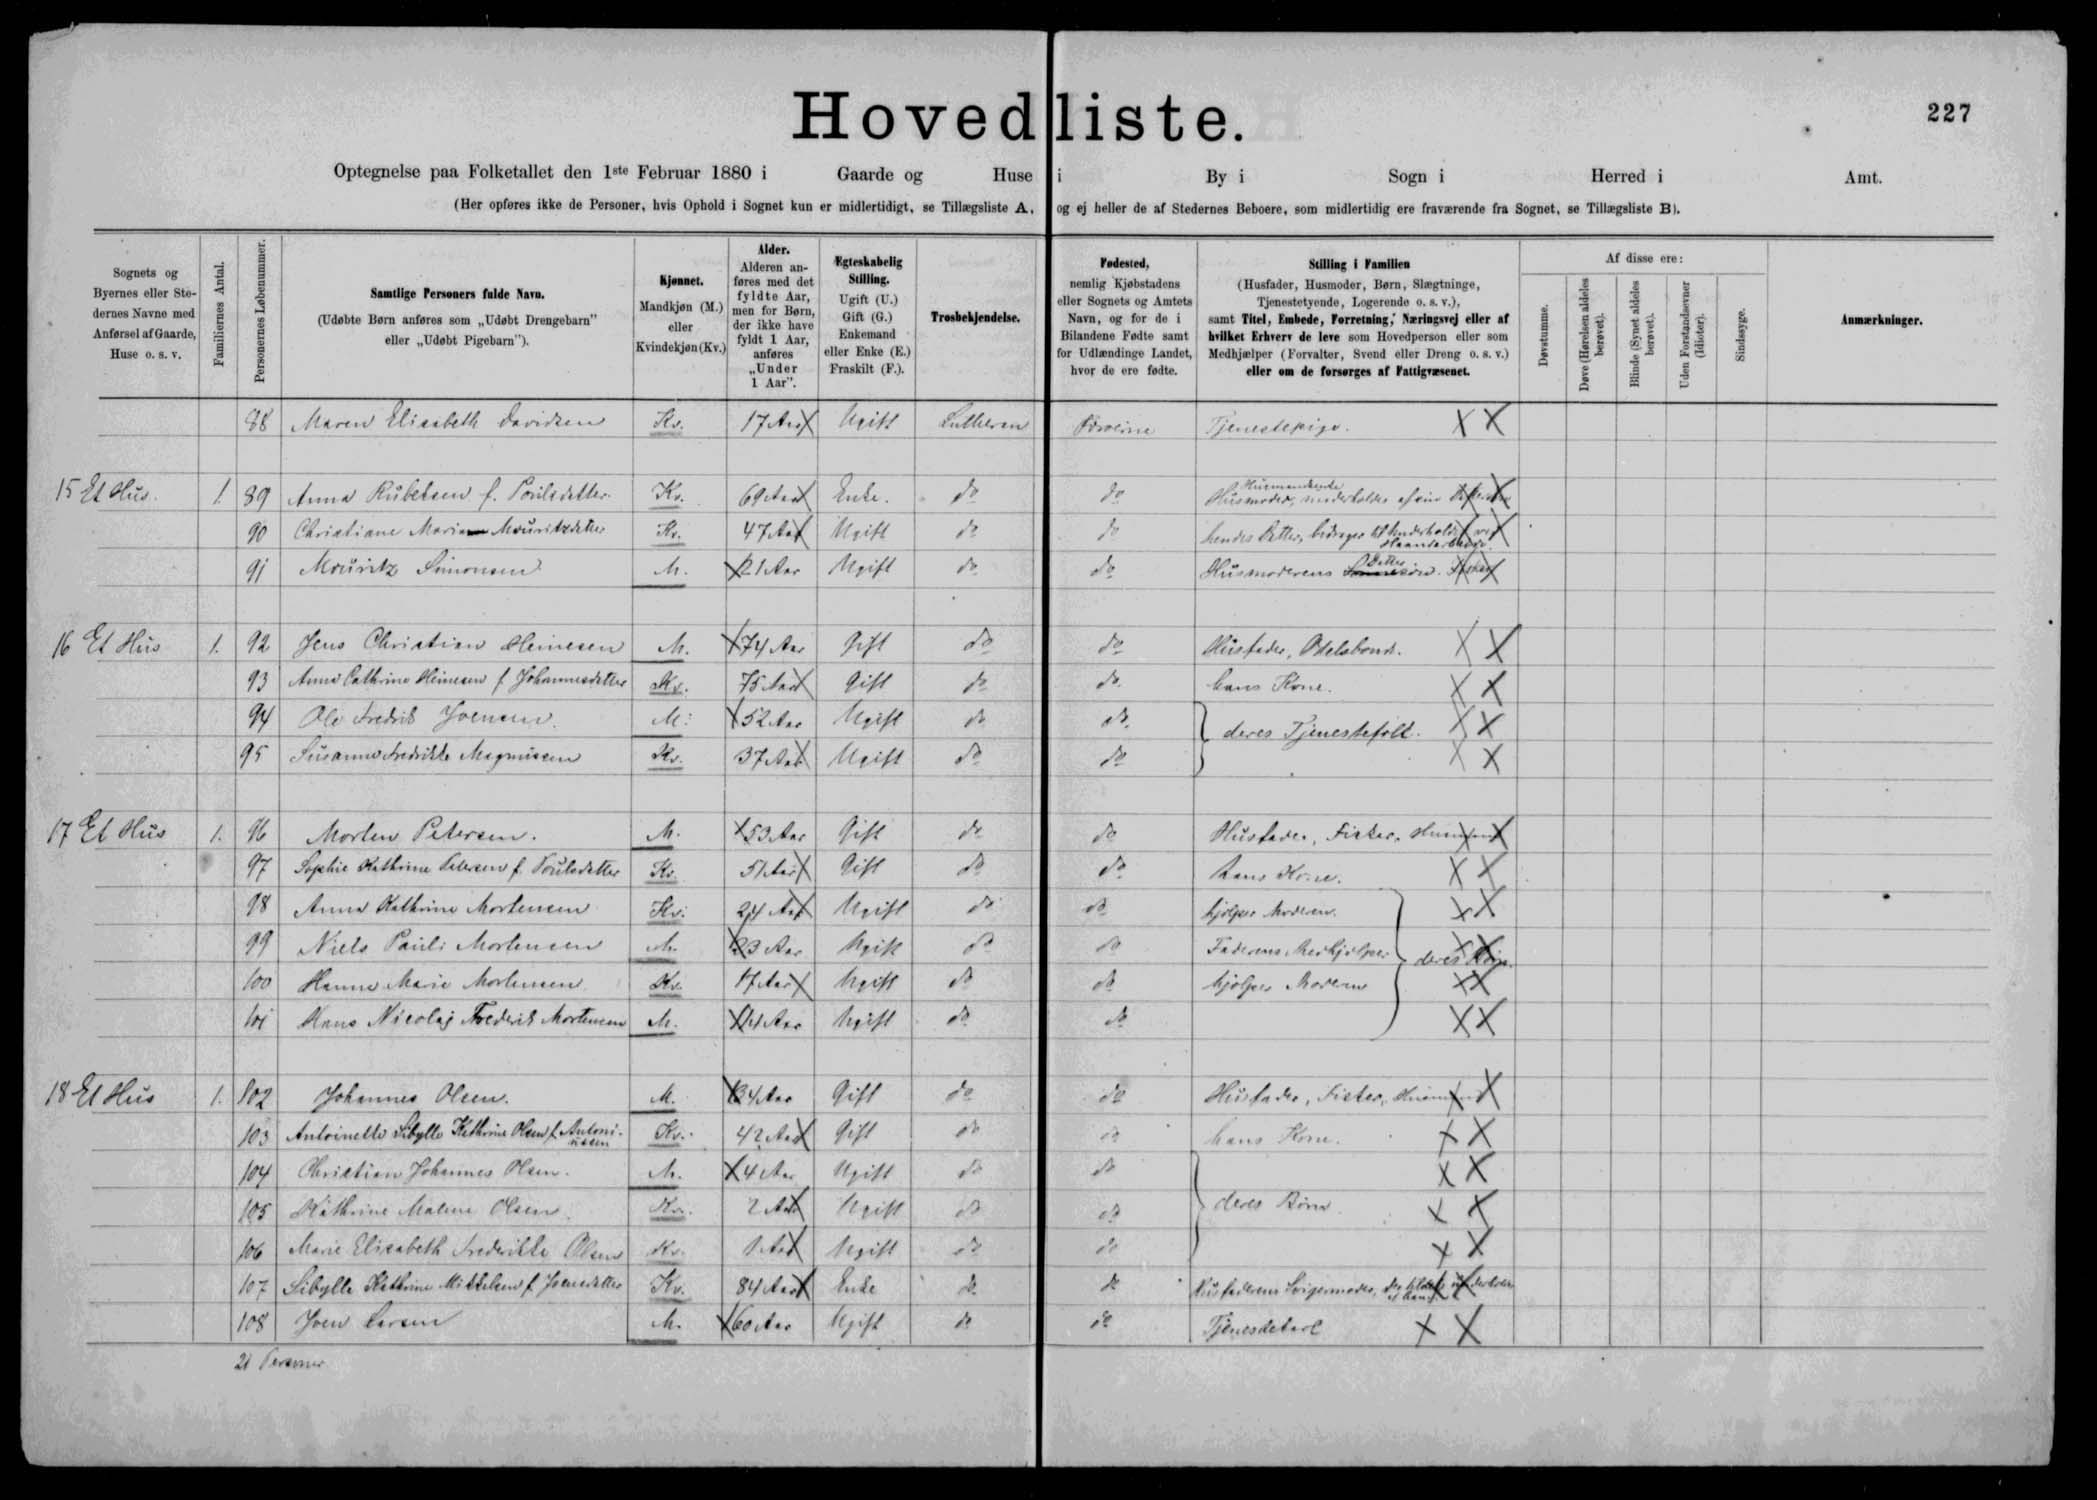 Hovedliste.
227
Optegnelse paa Folketallet den 1ste Februar 1880 i Gaarde og Huse i By i Sogn i Herred i Amt.
(Her opføres ikke de Personer, hvis Ophold i Sognet kun er midlertidigt, se Tillægsliste A, og ej heller de af Stedernes Beboere, som midlertidig ere fraværende fra Sognet, se Tillægsliste B).
Sognets og
Byernes eller Ste-
dernes Navne med
Anførsel af Gaarde,
Huse o. s. v.
Familiernes Antal.
Personernes Løbenummer.
Samtlige Personers fulde Navn.
(Udøbte Børn anføres som „Udøbt Drengebarn"
eller „Udøbt Pigebarn").
Kjønnet.
Mandkjøn (M.)
eller
Kvindekjøn (Kv.)
Alder.
Alderen an-
føres med det
fyldte Aar,
men for Børn,
der ikke have
fyldt 1 Aar,
anføres
„Under
1 Aar".
Ægteskabelig
Stilling.
Ugift (U.)
Gift (G.)
Enkemand
eller Enke (E.)
Fraskilt (F.).
Trosbekjendelse.
Fødested,
nemlig Kjøbstadens
eller Sognets og Amtets
Navn, og for de i
Bilandene Fødte samt
for Udlændinge Landet,
hvor de ere fødte.
Stilling i Familien
(Husfader, Husmoder, Børn, Slægtninge,
Tjenestetyende, Logerende o. s. v.),
samt Titel, Embede, Forretning, Næringsvej eller af
hvilket Erhverv de leve som Hovedperson eller som
Medhjælper (Forvalter, Svend eller Dreng o. s. v.)
eller om de forsørges af Fattigvæsenet.
Af disse ere:
Døvstumme.
Døve (Hørelsen aldeles berøvet).
Blinde (Synet aldeles berøvet).
Uden Forstandsevner (Idioter).
Sindssyge.
Anmærkninger.
88 Maren Elisabeth Davidsen Kv. 17 Aar Ugift Lutheran Færøerne Tjenestepige.
15 Et Hus. 1. 89 Anna Rubeksen f. Poulsdatter Kv. 69 Aar Enke. do do Husmandsenke Husmoder, underholdes af sin
90 Christiane Maria Mouritzdatter Kv. 47 Aar Ugift do do hendes Datter, bidrager til Underholdet ved Haandarbeide.
91 Mouritz Simonsen M. 21 Aar Ugift do do Husmoderens Datter søn. Fisker
16 Et Hus 1. 92 Jens Christian Heinesen M. 74 Aar Gift do do Husfader, Odelsbonde.
93 Anna Cathrine Heinesen f Johannesdatter Kv. 75 Aar Gift do do hans Kone.
94 Ole Fredrik Joensen. M. 52 Aar Ugift do do deres Tjenestefolk.
95 Susanne Fredrikke Magnussen Kv. 37 Aar Ugift do do
17 Et Hus 1. 96 Morten Petersen. M. 53 Aar Gift do do Husfader, Fisker, Husmand
97 Sophie Kathrine Petersen f. Poulsdatter Kv. 51 Aar Gift do do hans Kone.
98 Anna Kathrine Mortensen Kv. 24 Aar Ugift do do hjælper Moderen.
99 Niels Pauli Mortensen M. 23 Aar Ugift do do Faderens Medhjælper deres Børn.
100 Hanne Marie Mortensen Kv. 17 Aar Ugift do do hjælper Moderen
101 Hans Nicolaj Frederik Mortensen M. 14 Aar Ugift do do
18 Et Hus 1. 102 Johannes Olsen. M. 34 Aar Gift do do Husfader, Fisker, Husmand
103 Antoinette Sibylle Kathrine Olsen f. Antoniussen Kv. 42 Aar Gift do do hans Kone.
104 Christian Johannes Olsen. M. 4 Aar Ugift do do
105 Kathrine Malene Olsen Kv. 2 Aar Ugift do do deres Børn
106 Marie Elisabeth Frederikke Olsen Kv. 1 Aar Ugift do do
107 Sibylle Kathrine Mikkelsen f. Joensdatter Kv. 84 Aar Enke do do Husfaderens Svigermoder,
108 Joen Larsen M. 60 Aar Ugift do do Tjenestekarl
21 Personer